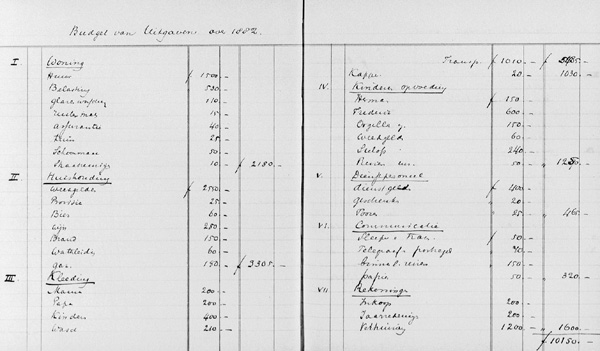 Budget van Uitgaven over 1882.
I Woning
Huur f 1500 -
Belasting 530 -
glazenwasscher 110 -
15 -
assurantie 40 -
Tuin 25 -
Schoorsteen 50 -
10 - f 2180. -
II Huishouding
Weekgelden f 2550 -
Provisie 25 -
Bier 60 -
Wijn 250 -
Brand 150 -
Waterleid. 60 -
gas. 150 - f 3305. -
III Kleeding
Mama 200 -
Papa 200 -
Kinderen 400 -
Wasch 210 -
Transp. f 1010. - f 5485. -
Kapper 20 - 1030. -
IV. Kinderen opvoeding
f 150 -
Frederik 600 -
150 -
Weekgeld 60 -
240 -
50 - " 1250. -
V. Dienstpersoneel
dienstgeld f 400 -
geschenken " 20 -
Fooien " 25 " 465. -
VI. Communicatie
Sleeper & Tram f 50 -
Telegraaf & postzegels 70 -
150 -
papier 50 " 320. -
VII. Rekeningen
Inkoop 200 -
Jaarrekening 200 -
Verteering 1200 - " 1600. -
f 10150. -